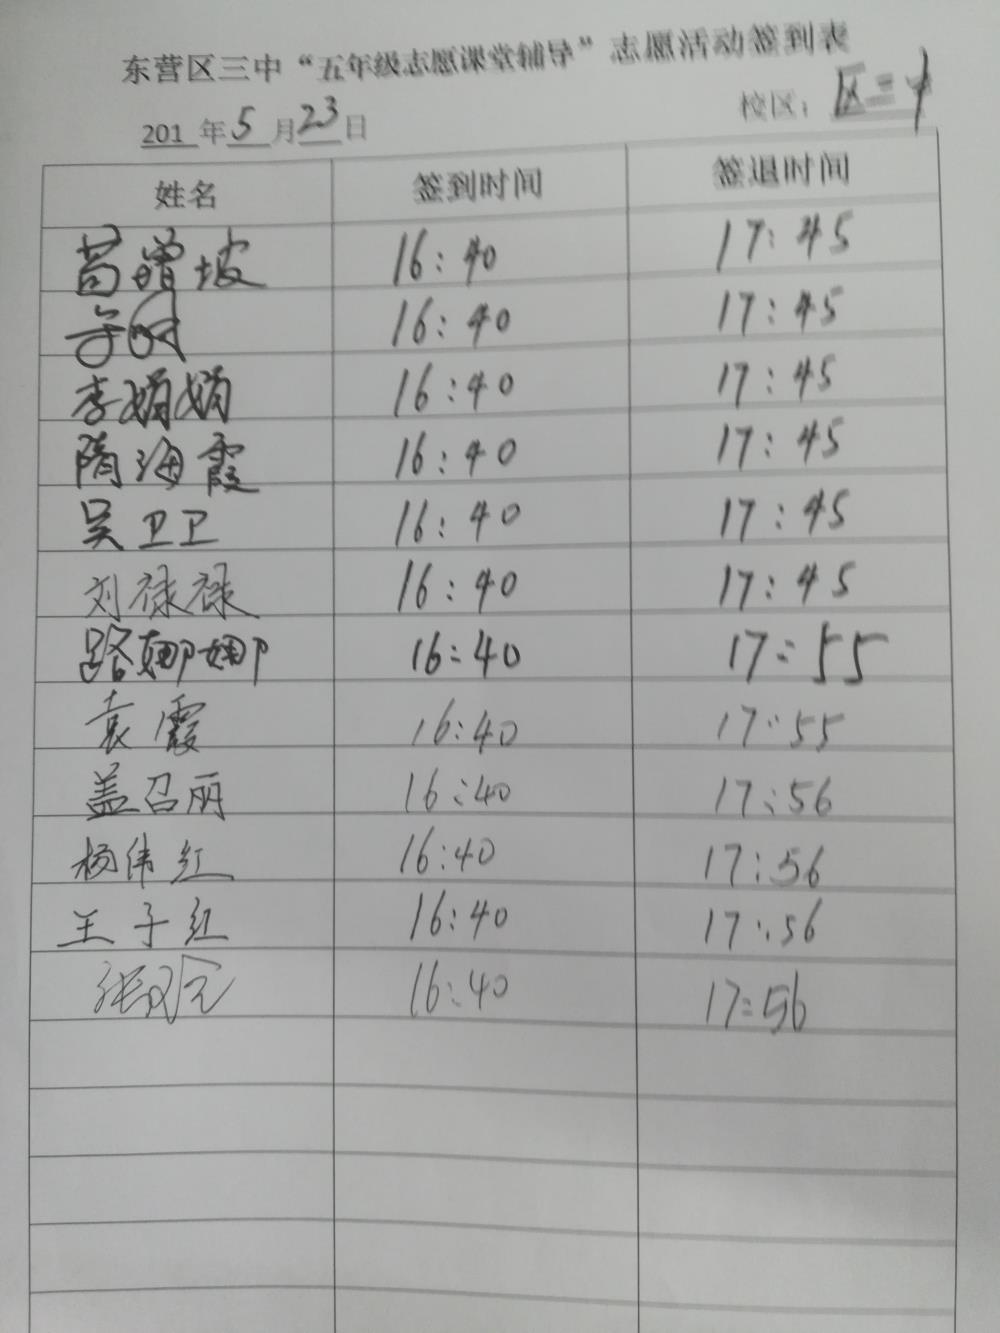 东营区三中“五年级志愿课堂辅导”志愿活动签到表
201 年 5 月 23 日 校区：区三中
姓名 签到时间 签退时间
苟增坡 16:40 17:45
16:40 17:45
李娟娟 16:40 17:45
隋海霞 16:40 17:45
吴卫卫 16:40 17:45
刘禄禄 16:40 17:45
路娜娜 16:40 17:55
袁霞 16:40 17:55
盖召丽 16:40 17:56
杨伟红 16:40 17:56
王子红 16:40 17:56
张 16:40 17:56